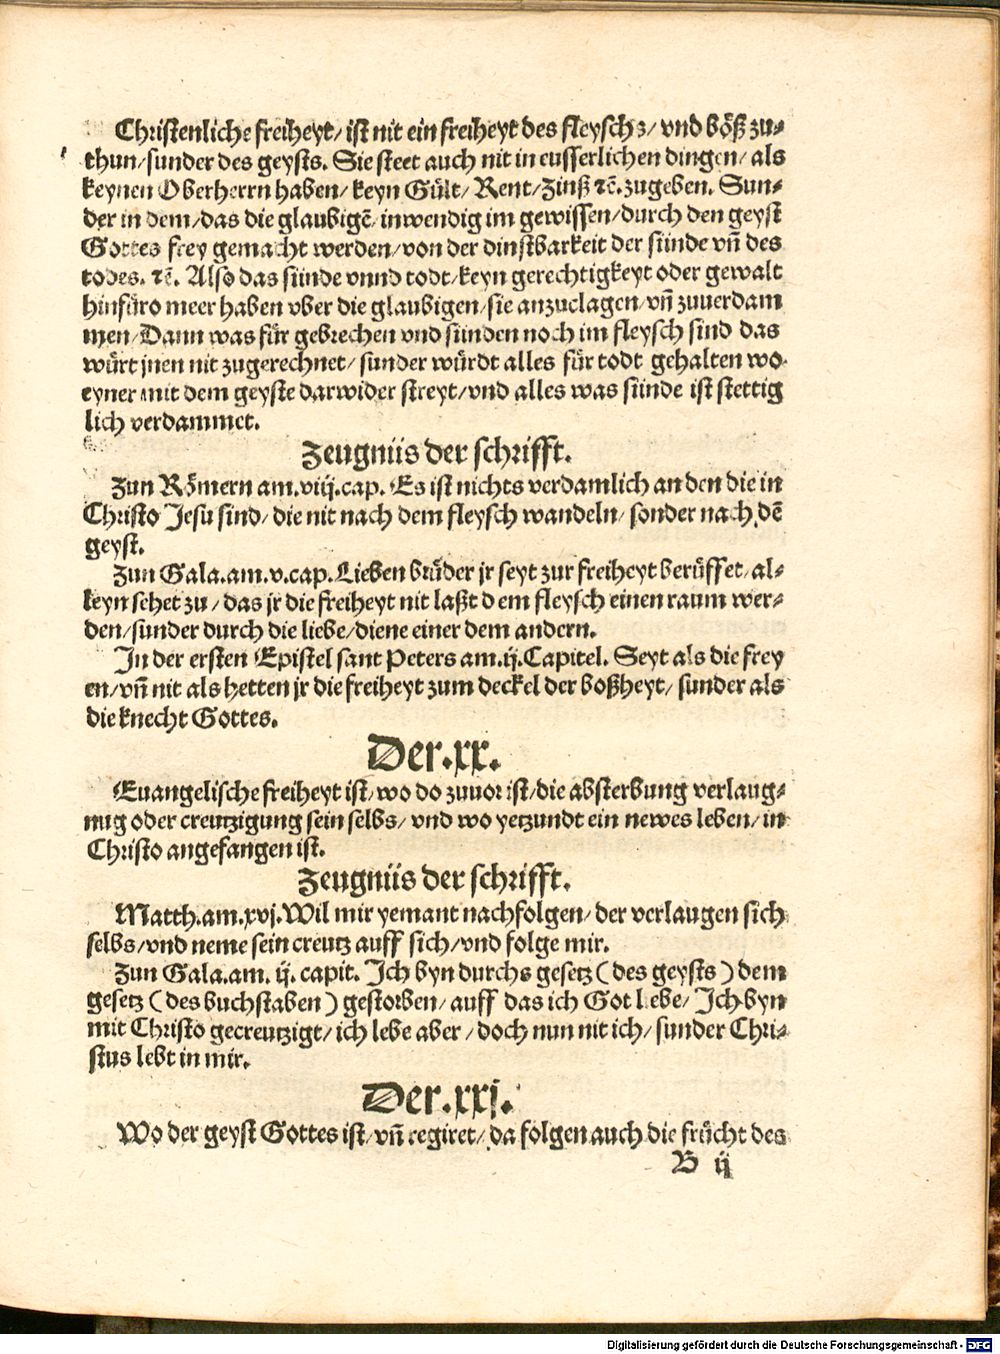 Christenliche freiheyt/ ist nit ein freiheyt des fleyschs/ vnd böß zu⸗
thun/sunder des geysts. Sie steet auch nit in eusserlichen dingen/ als
keynen Oberherrn haben/ keyn Gült/ Rent/ Zinß ꝛc̄. zugeben. Sun⸗
der in dem/das die glaubigē/inwendig im gewissen/durch den geyst
Gottes frey gemacht werden/von der dinstbarkeit der sünde vñ des
todes. ꝛc̄. Also das sünde vnnd todt/keyn gerechtigkeyt oder gewalt
hinfüro meer haben vber die glaubigen/sie anzuclagen/vñ zuuerdam
men/Dann was für gebrechen vnd sünden noch im fleysch sind das
würt jnen nit zugerechnet/ sunder würdt alles für todt gehalten wo
eyner mit dem geyste darwider streyt/vnd alles was sünde ist stettig
lich verdammet.
Zeugnüs der schrifft.
Zun Römern am.viij.cap. Es ist nichts verdamlich an den die in
Christo Jesu sind/ die nit nach dem fleysch wandeln/ sonder nach dē
geyst.
Zun Gala.am.v.cap. Lieben brüder jr seyt zur freiheyt berüffet/ al⸗
leyn sehet zu/ das jr die freiheyt nit laßt dem fleysch einen raum wer⸗
den/sunder durch die liebe/diene einer dem andern.
In der ersten Epistel sant Peters am.ij.Capitel. Seyt als die frey
en/vñ nit als hetten jr die freiheyt zum deckel der boßheyt/ sunder als
die knecht Gottes.
Der.xx.
Euangelische freiheyt ist/wo do zuuor ist/die absterbung verlaug⸗
nug oder creutzigung sein selbs/ vnd wo yetzundt ein newes leben/in
Christo angefangen ist.
Zeugnüs der schrifft.
Matth.am.xvj.Wil mir yemant nachfolgen/ der verlaugen sich
selbs/vnd neme sein creutz auff sich/vnd folge mir.
Zun Gala.am. ij. capit. Ich byn durchs gesetz (des geysts) dem
gesetz (des buchstaben) gestorben/ auff das ich Got lebe/ Ich byn
mit Christo gecreutzigt/ ich lebe aber/ doch nun nit ich/ sunder Chri⸗
stus lebt in mir.
Der.xxj.
Wo der geyst Gottes ist/vñ regiret/ da folgen auch die frücht des
B ij
Digitalisierung gefördert durch die Deutsche Forschungsgemeinschaft - DFG